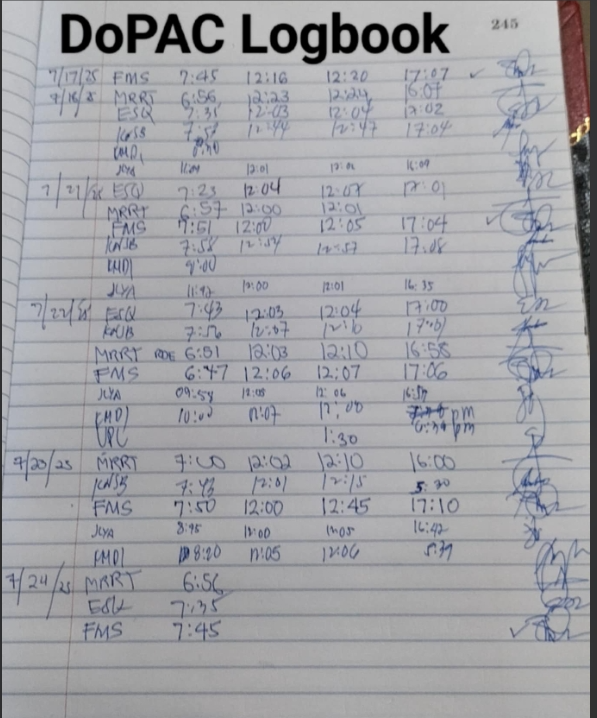 DoPAC Logbook
245
7/17/25 FMS 7:45 12:16 12:20 17:07 ✓
7/18/25 MRRT 6:56 12:23 12:24 16:07
ESQ 7:31 12:03 12:04 17:02
12:44 12:47 17:04
JLYA 12:01 16:09
7/21/25 ESQ 7:23 12:04 12:07 17:01
MRRT 6:57 12:00 12:01
FMS 7:51 12:00 12:05 17:04 ✓
7:58 12:54 12:57 17:08
8:00
JLYA 12:00 12:01 16:35
7/22/25 ESQ 7:43 12:03 12:04 17:00
7:56 12:07 17:01
MRRT 6:51 12:03 12:10 16:58
FMS 6:47 12:06 12:07 17:06
JLYA 09:58 12:05 12:06
12:07 12:08 pm
1:30 pm
MRRT 7:00 12:02 12:10 16:00
7:43 12:01 12:15 5:30
FMS 7:50 12:00 12:45 17:10
JLYA 12:00 12:05 16:42
8:20 12:05 12:06
7/24/25 MRRT 6:56
ESQ 7:35
FMS 7:45 ✓